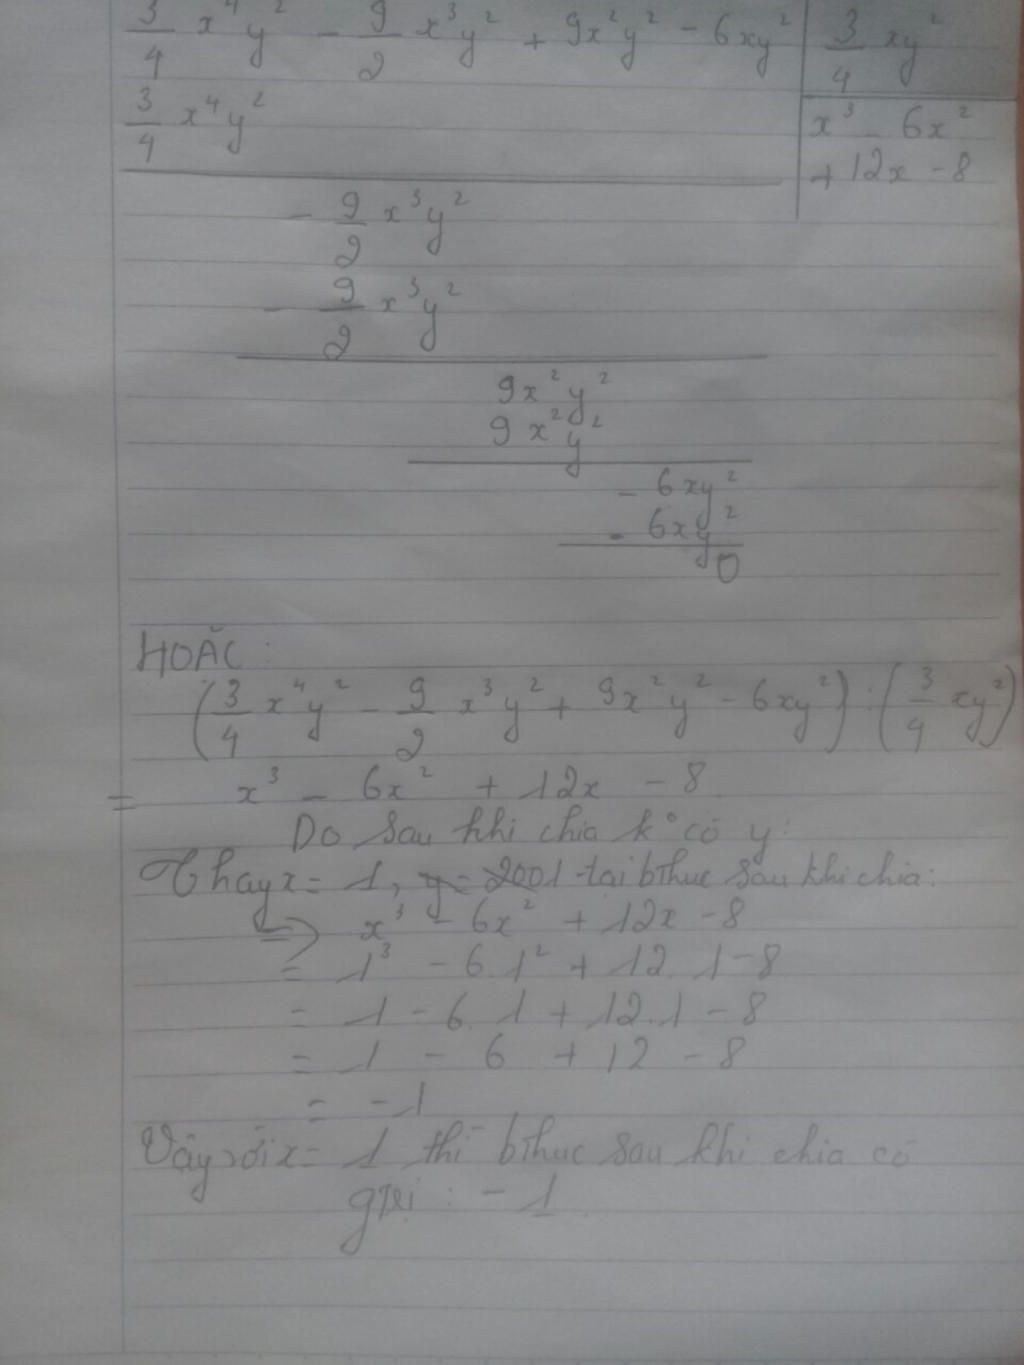 3/4 x⁴y² - 9/2 x³y² + 9x²y² - 6xy² | 3/4 xy²
3/4 x⁴y² | x³ - 6x²
+ 12x - 8
- 9/2 x³y²
- 9/2 x³y²
9x²y²
9x²y²
- 6xy²
- 6xy²
0
HOẶC :
(3/4 x⁴y² - 9/2 x³y² + 9x²y² - 6xy²) : (3/4 xy²)
= x³ - 6x² + 12x - 8
Do sau khi chia k° có y:
Thay x = 1, y = 2001 tại bthức sau khi chia:
=> x³ - 6x² + 12x - 8
= 1³ - 6.1² + 12.1 - 8
= 1 - 6.1 + 12.1 - 8
= 1 - 6 + 12 - 8
= -1
Vậy với x = 1 thì bthức sau khi chia có
gtrị : - 1